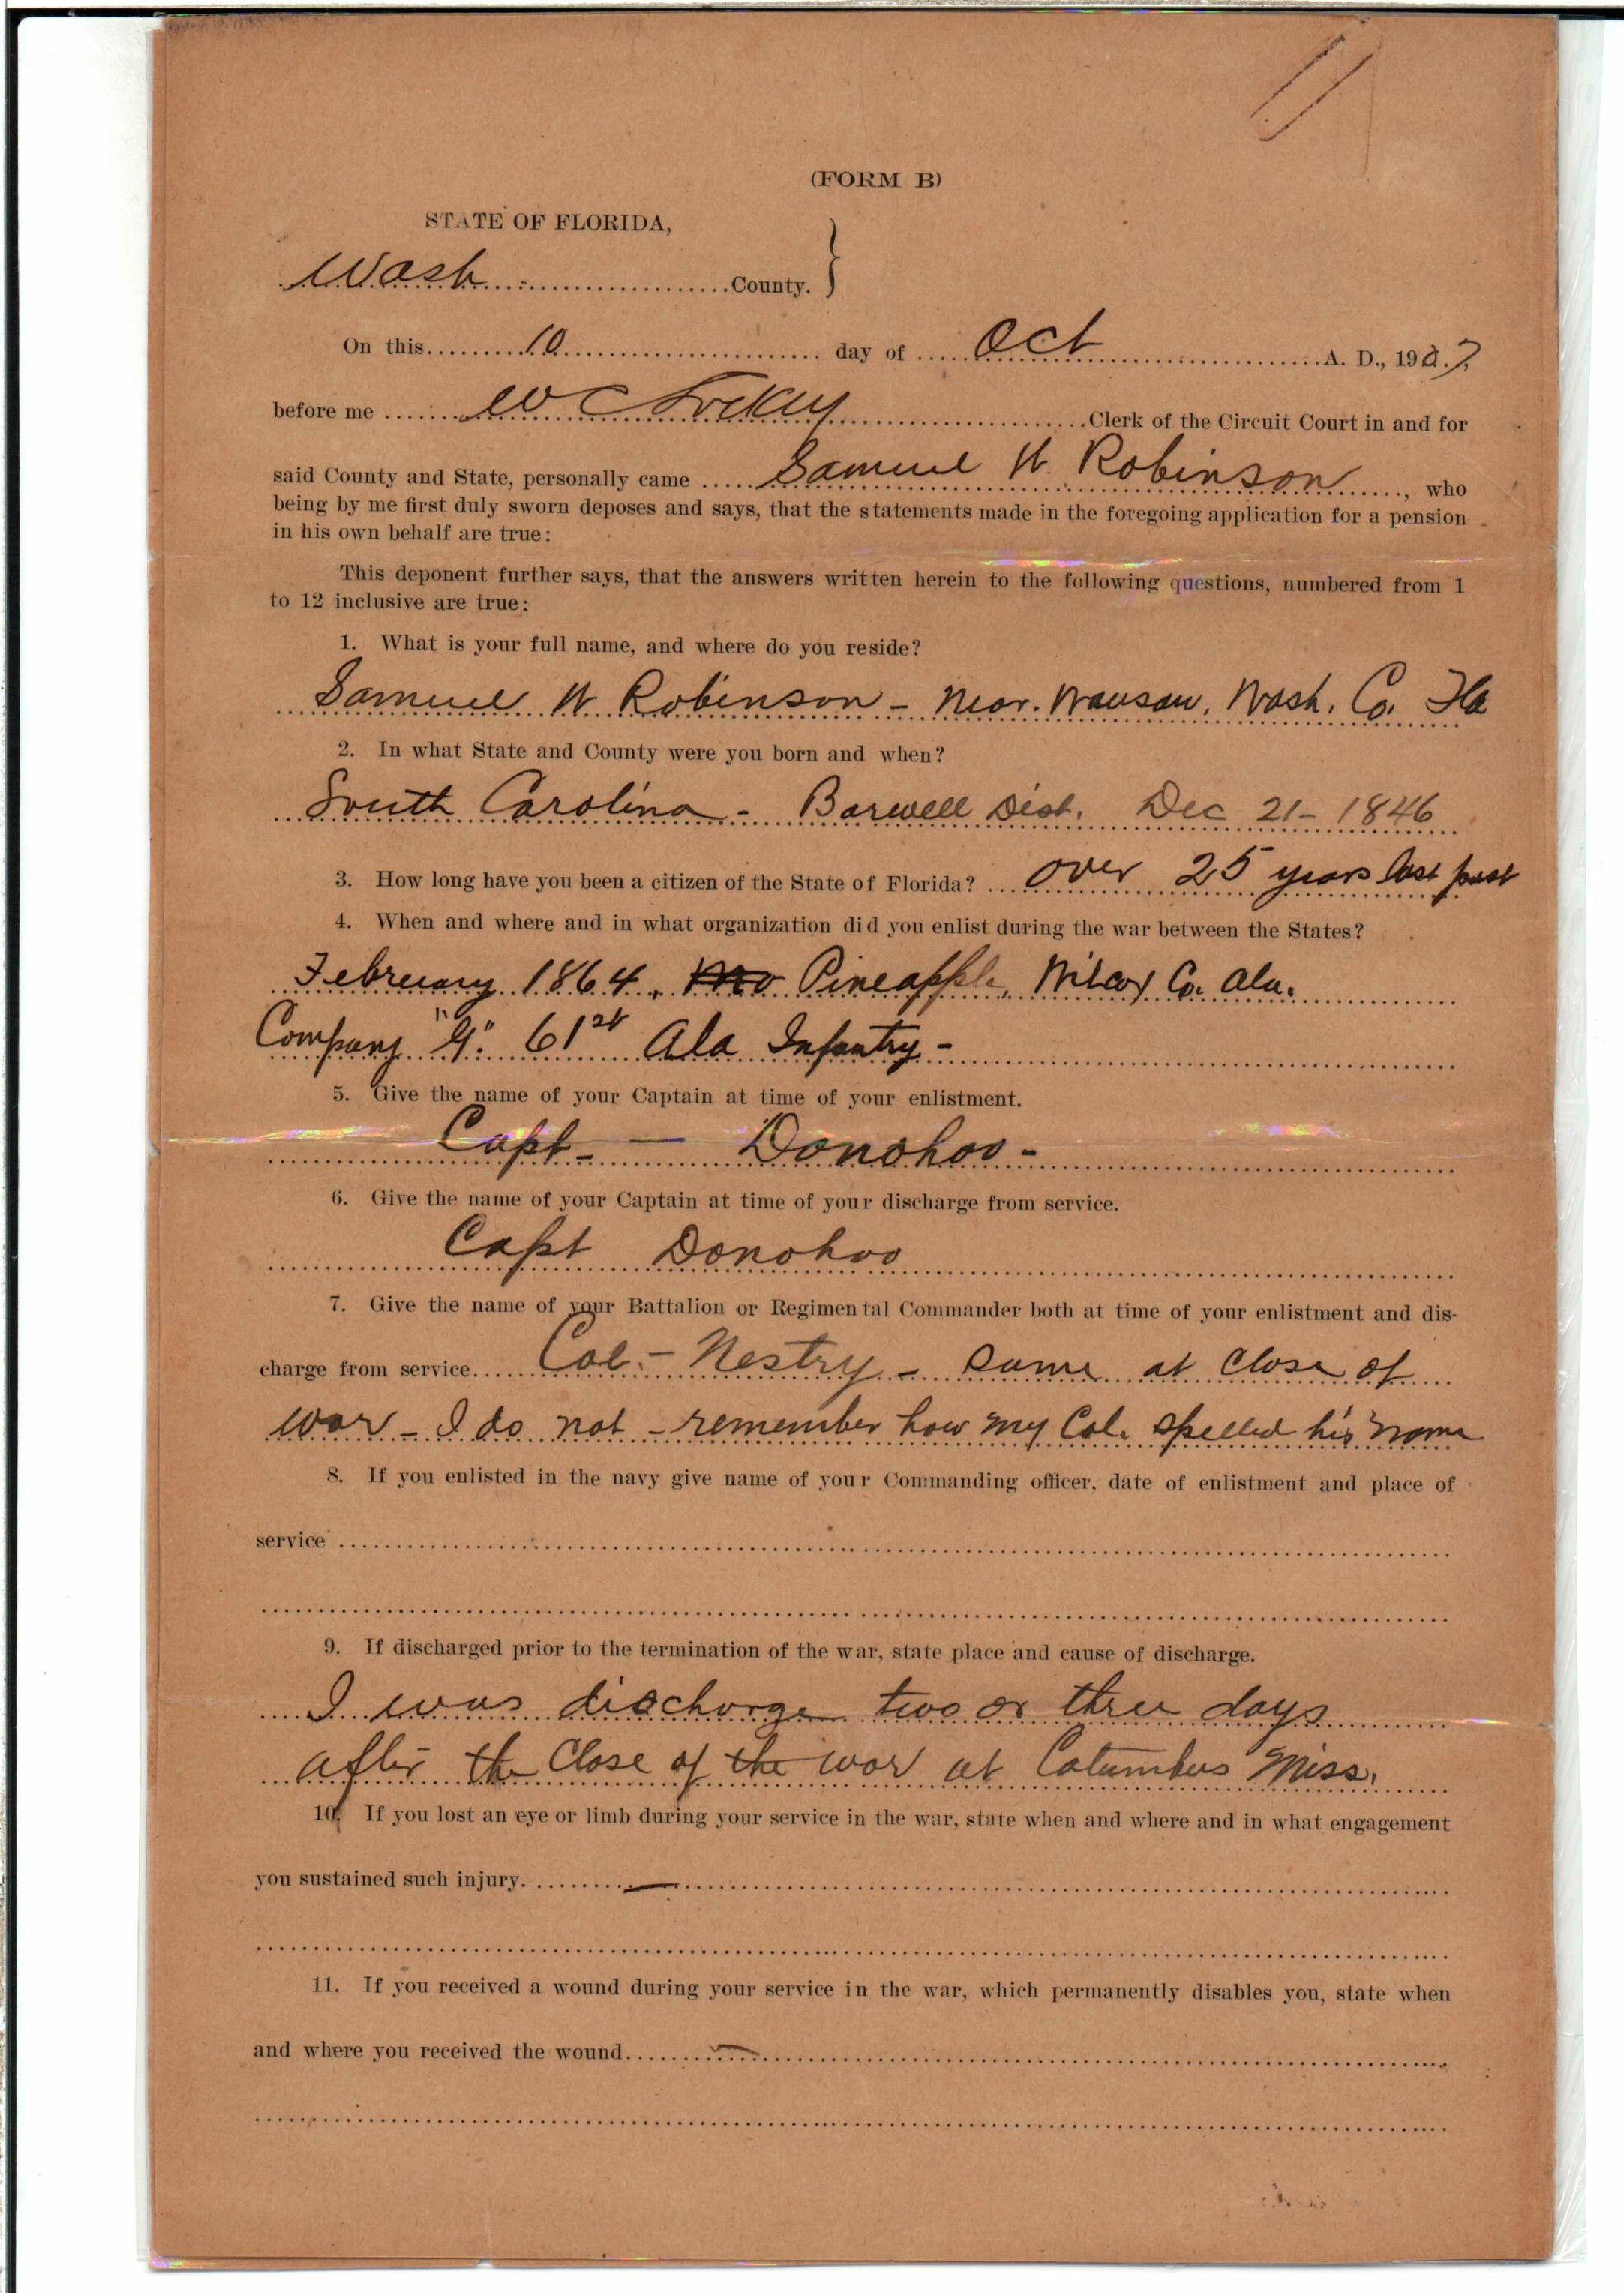 (FORM B)
STATE OF FLORIDA,
Wash County.
On this 10 day of Oct A. D., 1907,
before me W C Lockey Clerk of the Circuit Court in and for
said County and State, personally came Samuel W. Robinson, who
being by me first duly sworn deposes and says, that the statements made in the foregoing application for a pension
in his own behalf are true:
This deponent further says, that the answers written herein to the following questions, numbered from 1
to 12 inclusive are true:
1. What is your full name, and where do you reside?
Samuel W Robinson - Near. Wausau, Wash. Co. Fla
2. In what State and County were you born and when?
South Carolina - Barwell Dist. Dec 21 - 1846
3. How long have you been a citizen of the State of Florida? over 25 years last past
4. When and where and in what organization did you enlist during the war between the States?
February 1864, Pineapple, Wilcox Co. Ala.
Company "G" 61st Ala Infantry -
5. Give the name of your Captain at time of your enlistment.
Capt - — Donohoo -
6. Give the name of your Captain at time of your discharge from service.
Capt Donohoo
7. Give the name of your Battalion or Regimental Commander both at time of your enlistment and dis-
charge from service Col. - Nestry - same at close of
war - I do not - remember how my Col. spelled his name
8. If you enlisted in the navy give name of your Commanding officer, date of enlistment and place of
service
9. If discharged prior to the termination of the war, state place and cause of discharge.
I was discharge two or three days
after the Close of the war at Columbus Miss.
10. If you lost an eye or limb during your service in the war, state when and where and in what engagement
you sustained such injury. —
11. If you received a wound during your service in the war, which permanently disables you, state when
and where you received the wound. —